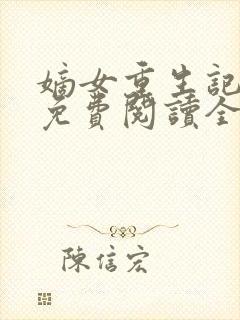 嫡女重生記
免費閱讀全
陳信宏